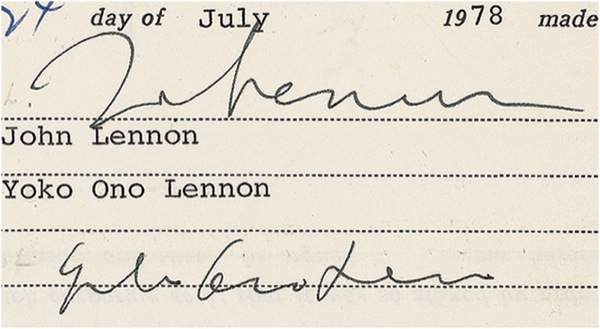 24 day of July 1978 made
John Lennon
John Lennon
Yoko Ono Lennon
Yoko Ono Lennon